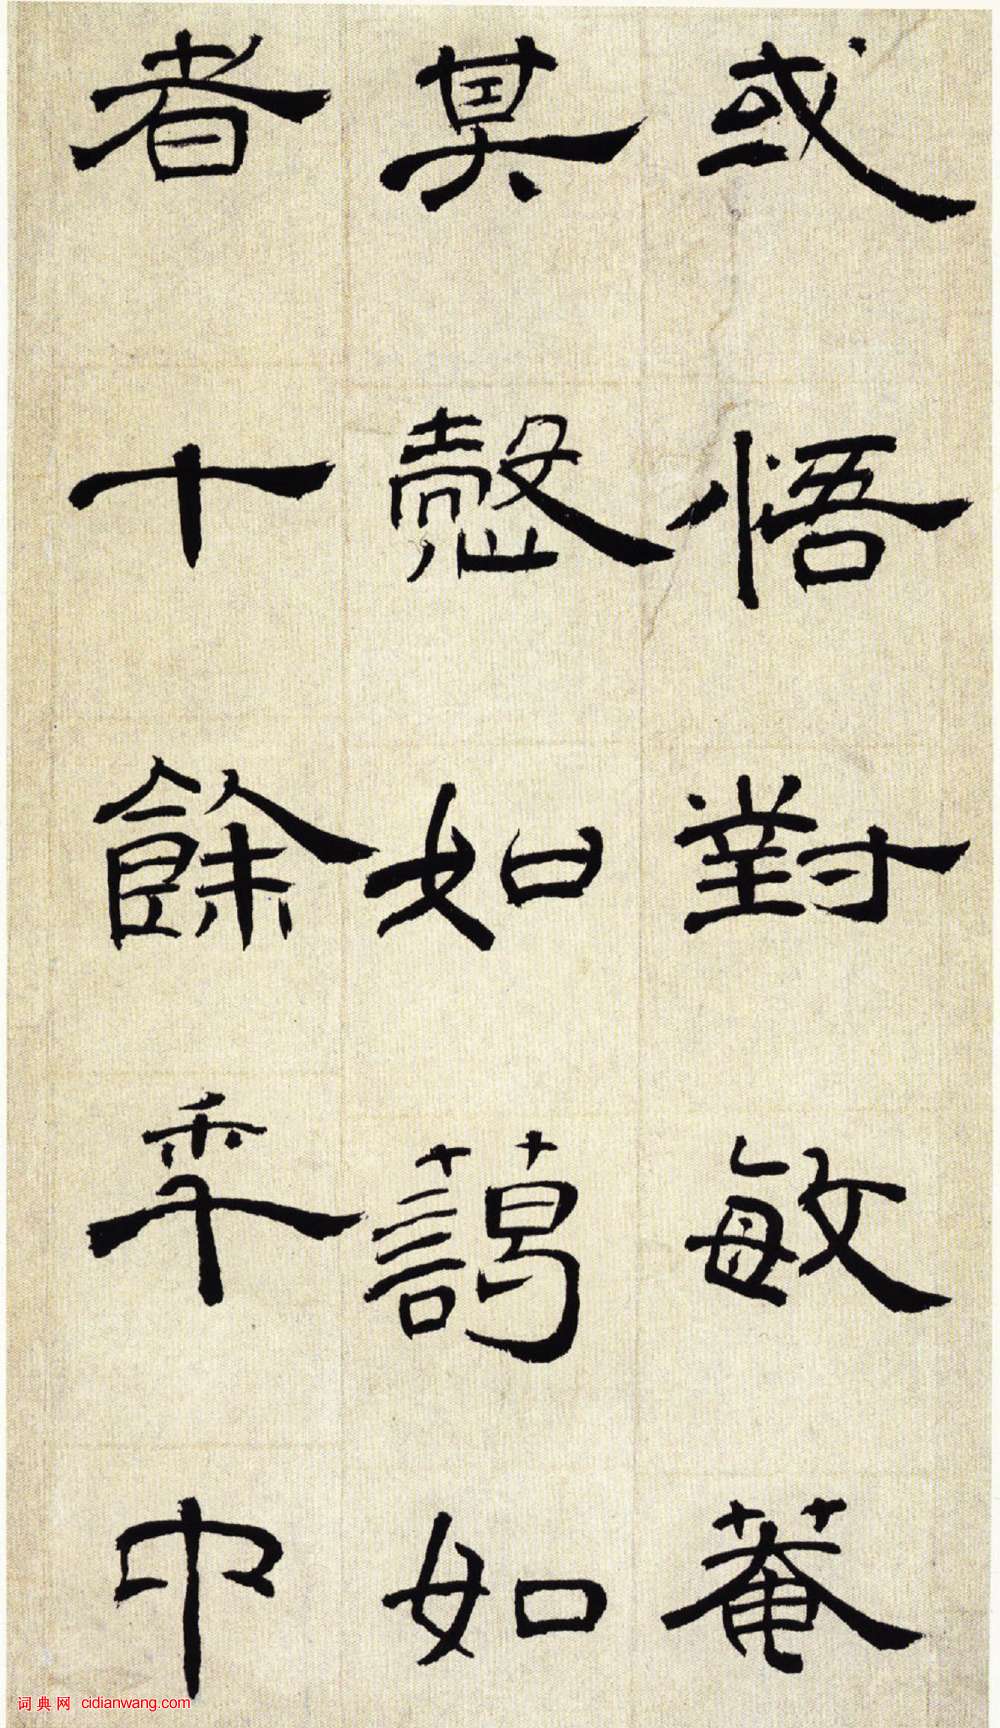 或悟對敏菴
其慤如藹如
者十餘秊中
词典网 cidianwang.com